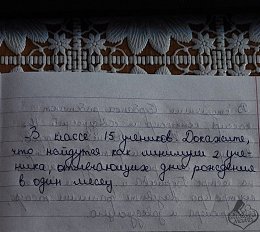 В классе 15 учеников. Докажите,
что найдутся как минимум 2 уче-
ника, отмечающих дни рождения
в один месяц.